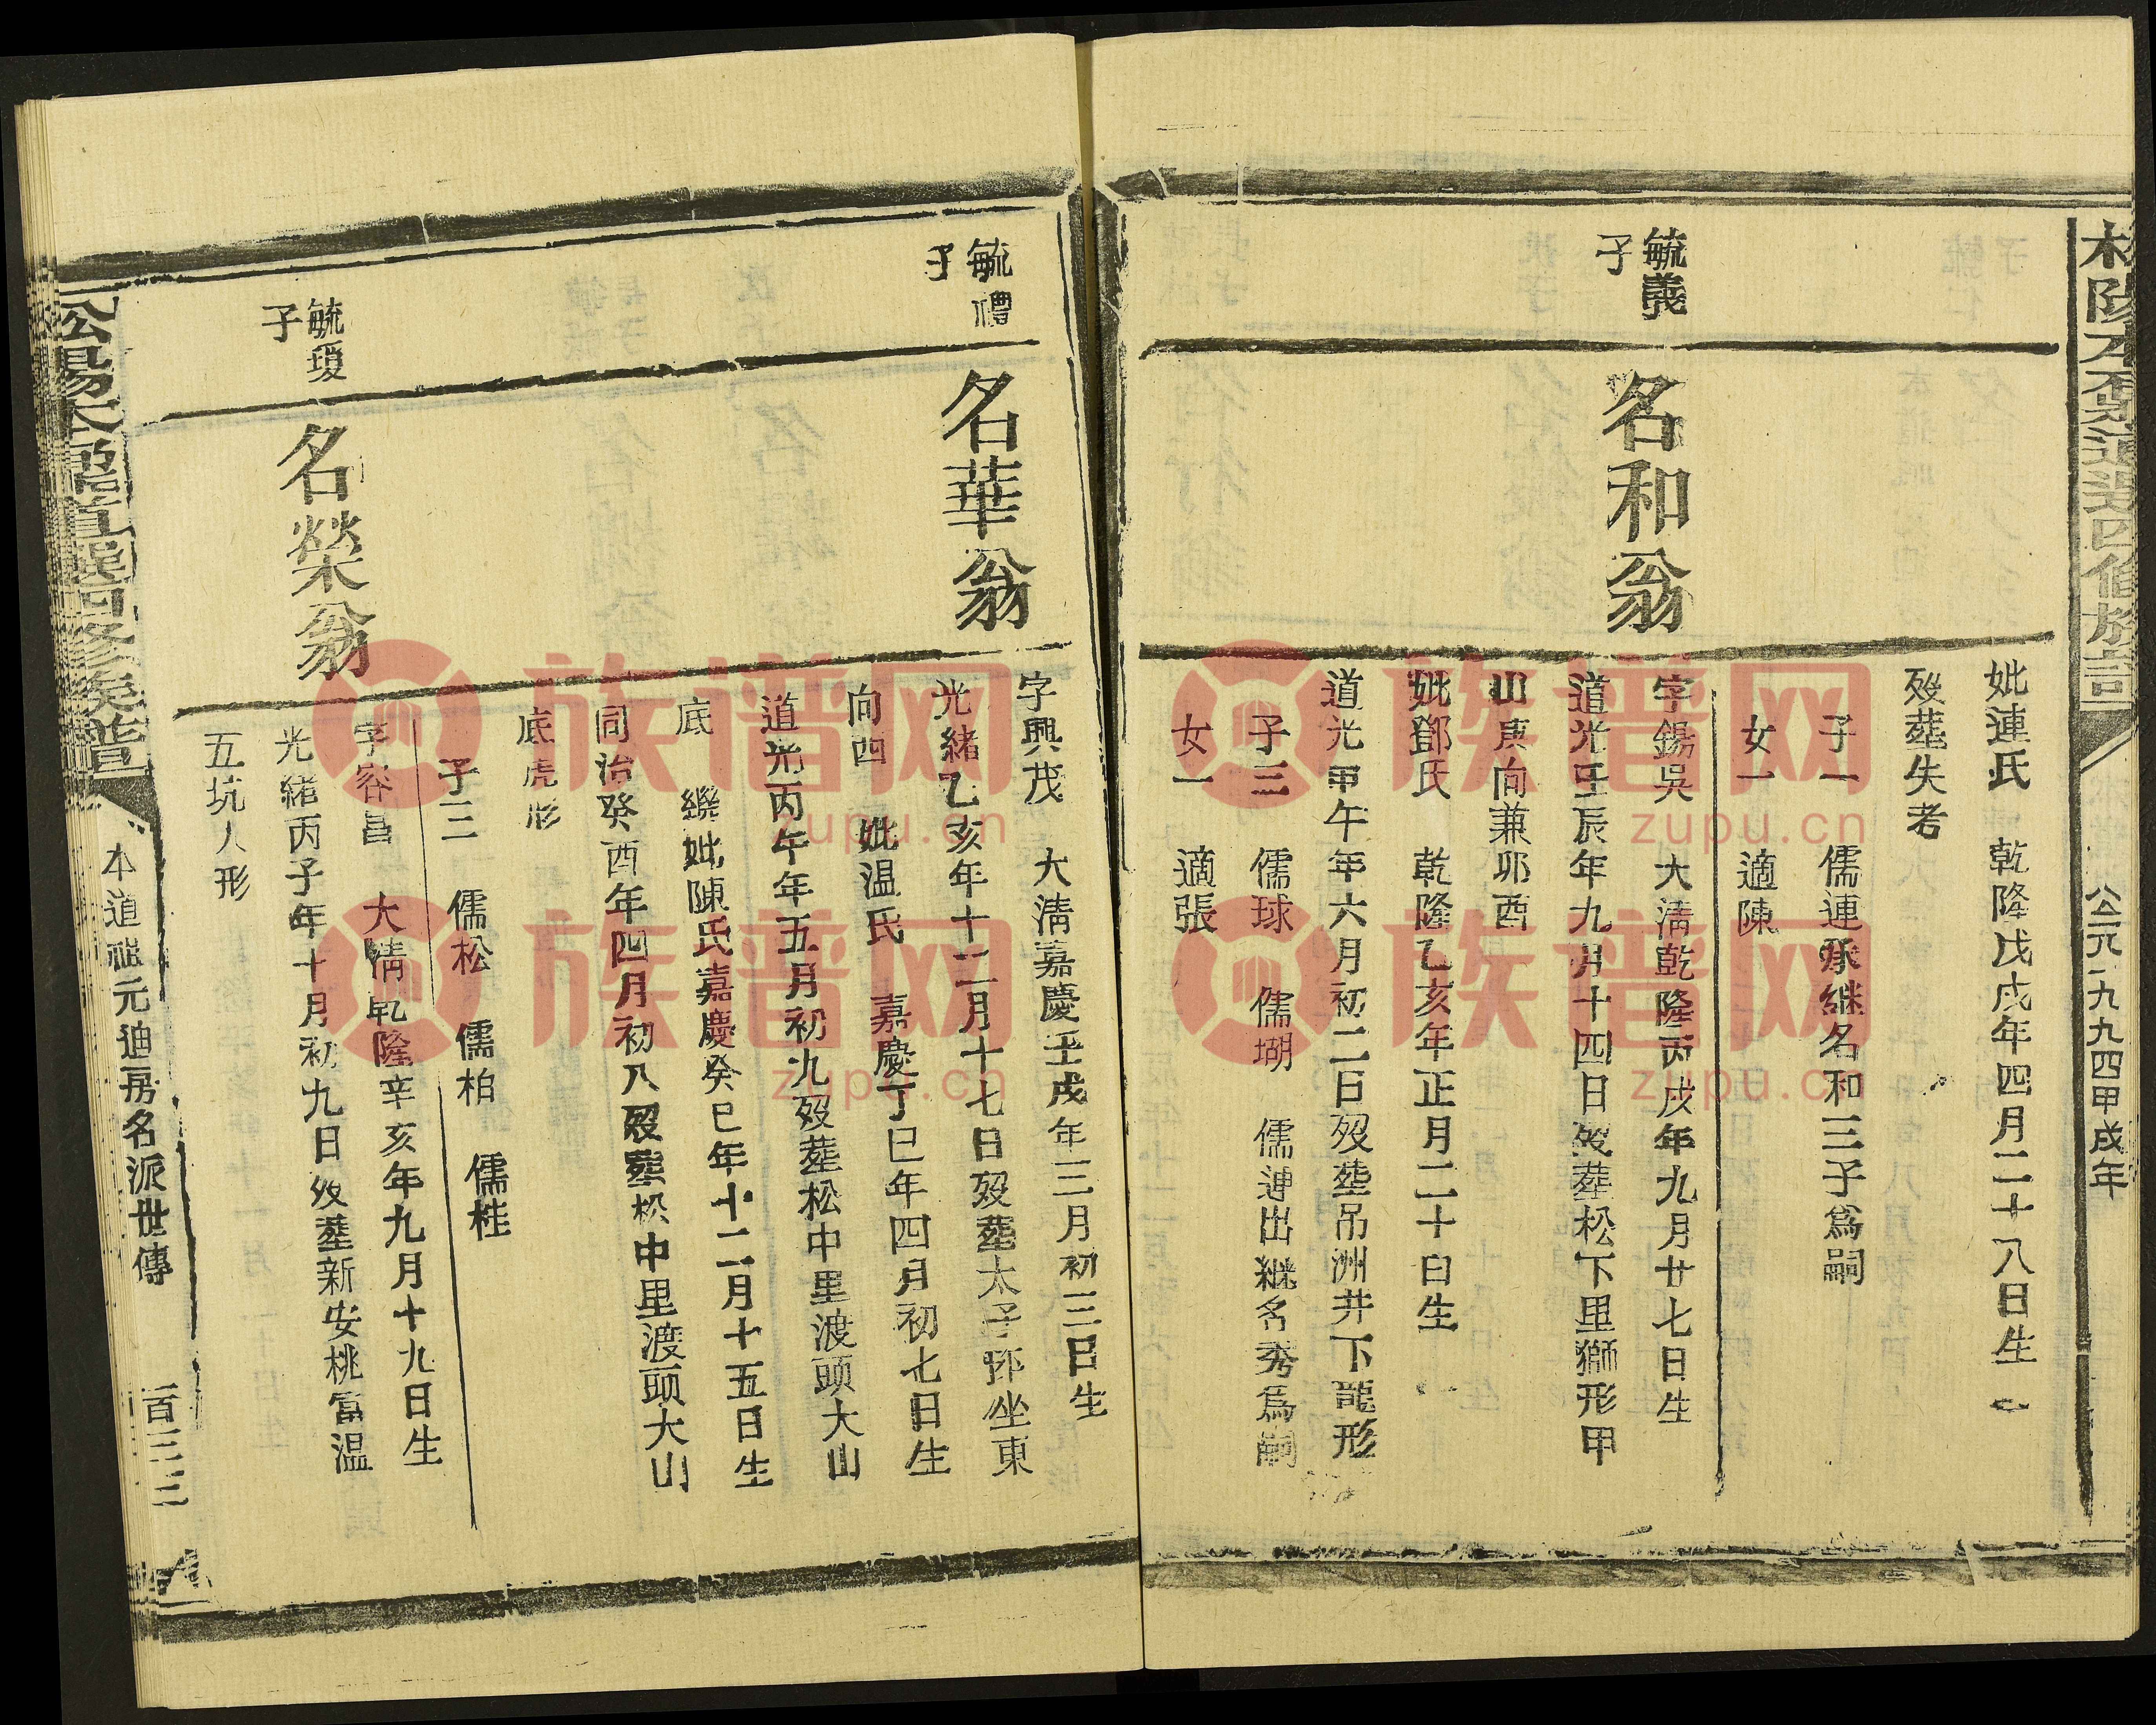 公元一九九四甲戌年
妣連氏 乾隆戊戌年四月二十八日生
歿塟失考
子一 儒連承继名和三子爲嗣
女一 適陳
毓義
子
名和翁
字錫吳 大淸乾隆丙戌年九月廿七日生
道光壬辰年九月十四日歿塟松下里獅形甲
山庚向兼卯酉
妣鄧氏 乾隆乙亥年正月二十日生
道光甲午年六月初二日歿塟吊洲井下龍形
子三 儒球 儒瑚 儒連出継名秀爲嗣
女一 適張
毓禮
子
名華翁
字興茂 大淸嘉慶壬戌年三月初三日生
光緒乙亥年十二月十七日歿塟太子 坐東
向西 妣温氏 嘉慶丁巳年四月初七日生
道光丙午年五月初九歿塟松中里渡頭大山
底 継妣陳氏嘉慶癸巳年十二月十五日生
同治癸酉年四月初八歿塟松中里渡頭大山
底虎形
子三 儒松 儒柏 儒桂
毓瑷
子
名榮翁
字容昌 大淸乾隆辛亥年九月十九日生
光緒丙子年十月初九日歿塟新安桃富温
五坑人形
本道磁元迪房名派世傳
一百三三
族谱网
zupu.cn
族谱网
zupu.cn
族谱网
zupu.cn
族谱网
zupu.cn